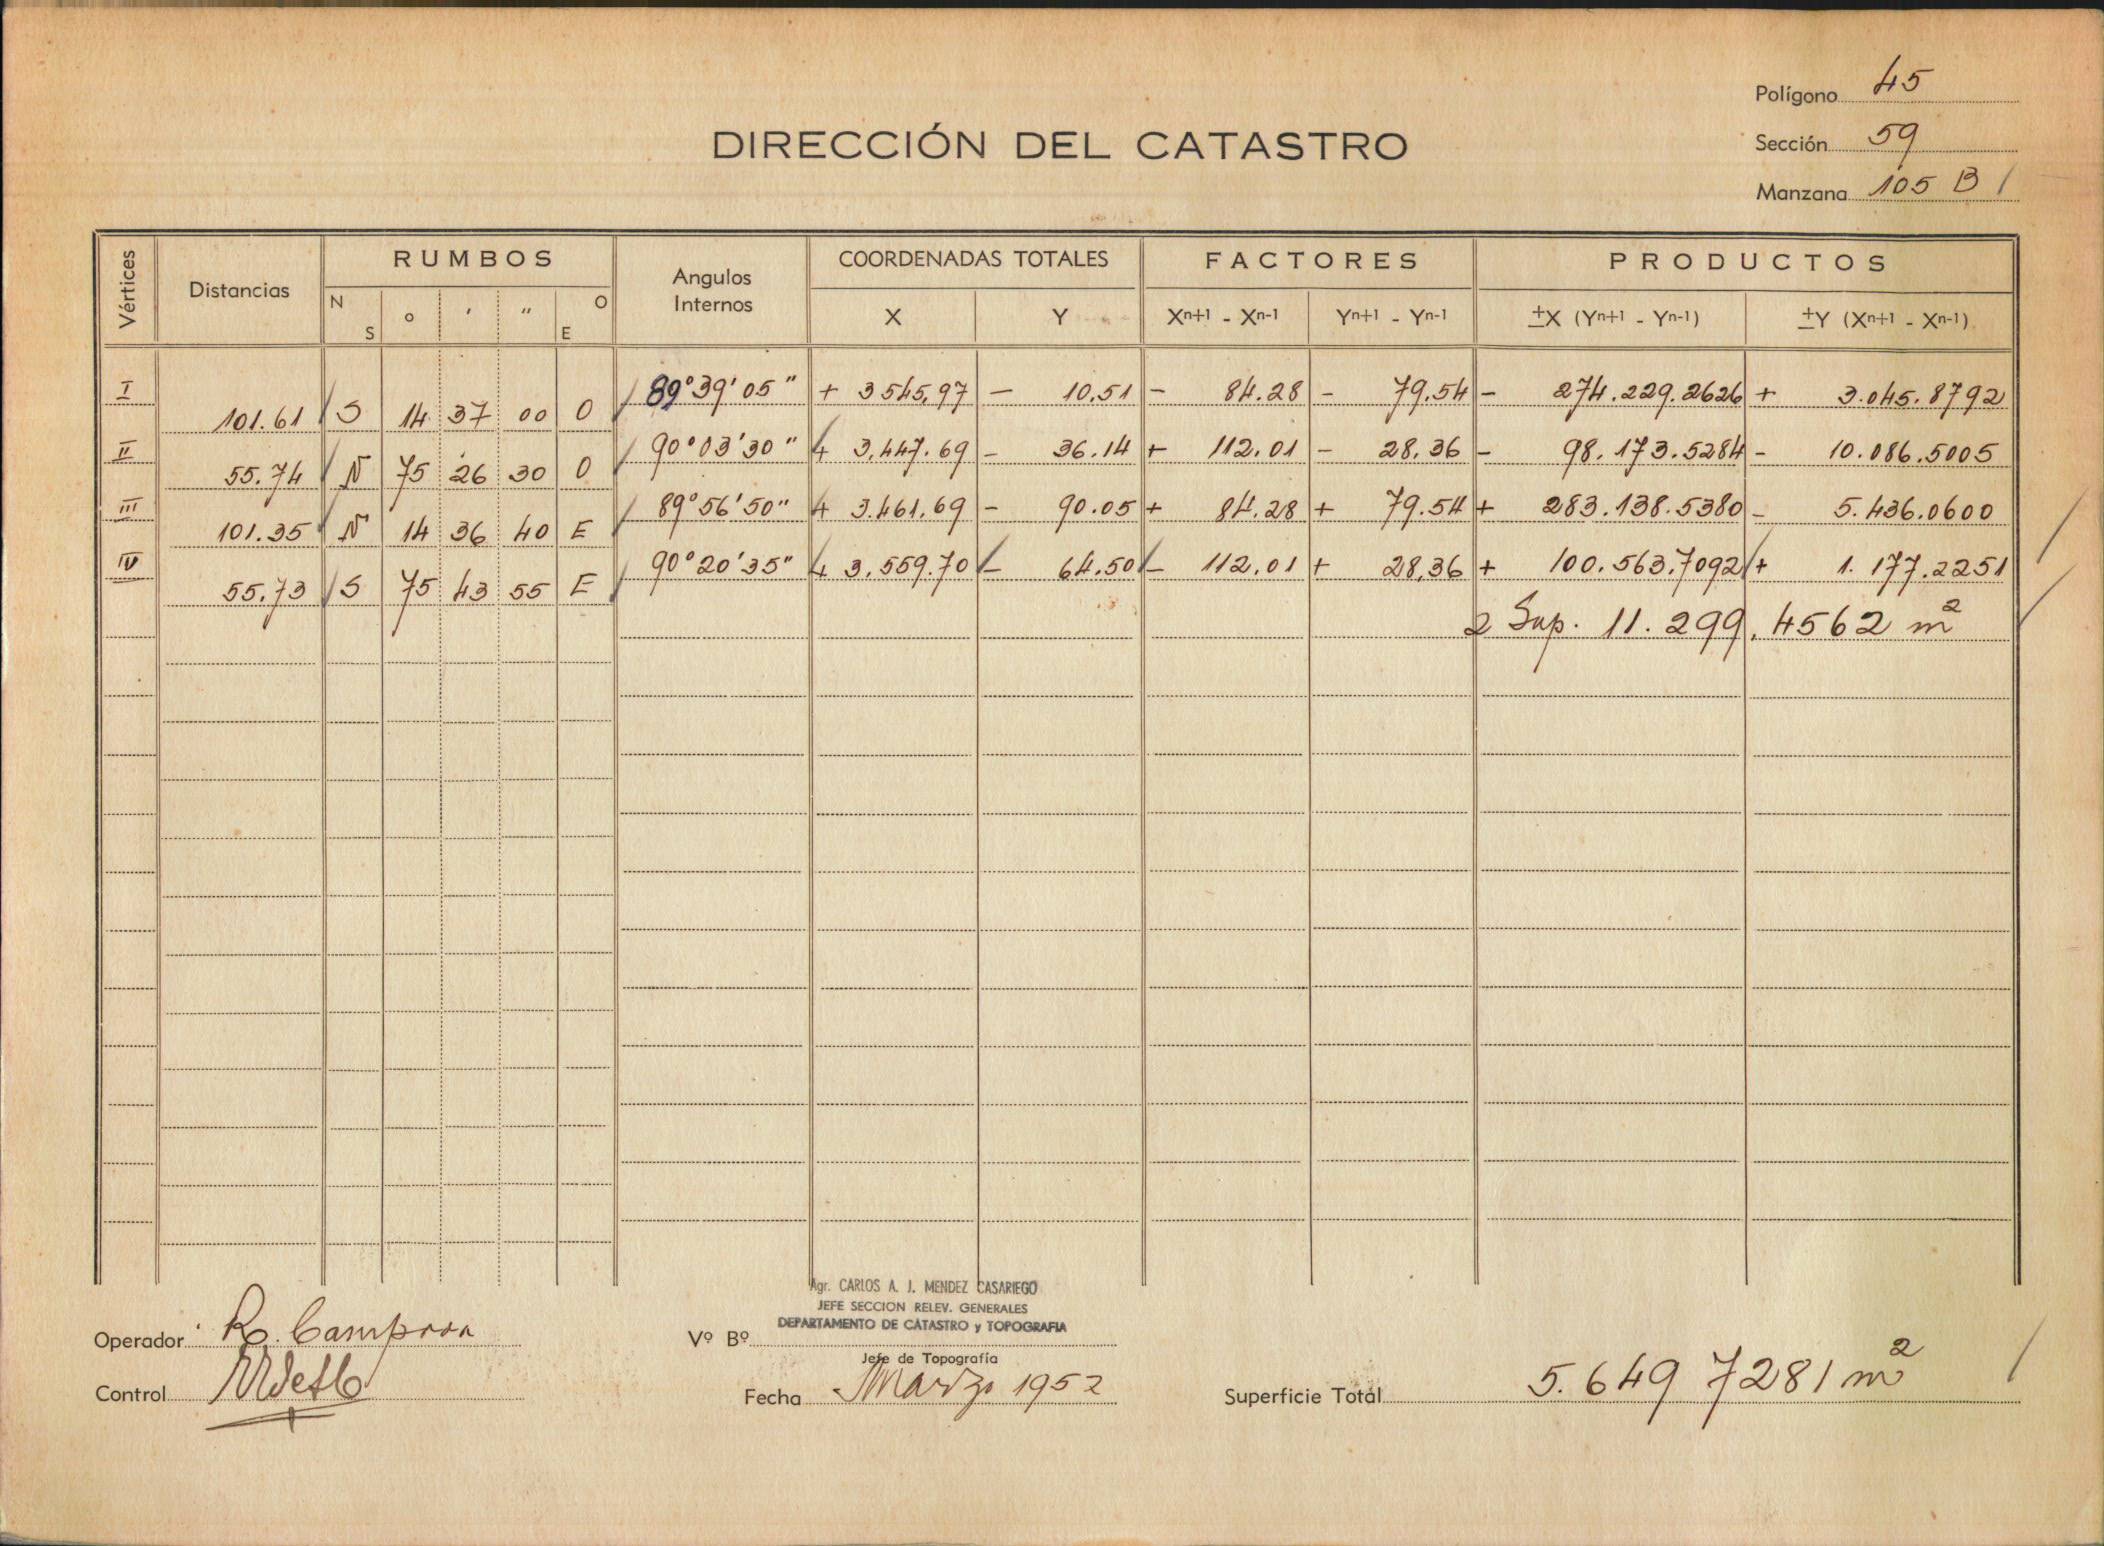 Polígono 45
DIRECCIÓN DEL CATASTRO
Sección 59
Manzana 105 B /
Vértices Distancias RUMBOS Angulos Internos COORDENADAS TOTALES FACTORES PRODUCTOS
N S ° ' " O E X Y Xn+1 - Xn-1 Yn+1 - Yn-1 ±X (Yn+1 - Yn-1) ±Y (Xn+1 - Xn-1)
I 89°39'05" + 3545,97 - 10,51 - 84.28 - 79,54 - 274.229.2626 + 3.045.8792
101.61 S 14 37 00 O
II 90°03'30" + 3,447.69 - 36.14 + 112.01 - 28,36 - 98.173.5284 - 10.086.5005
55.74 N 75 26 30 O
III 89°56'50" + 3.461.69 - 90.05 + 84.28 + 79.54 + 283.138.5380 - 5.436.0600
101.35 N 14 36 40 E
IV 90°20'35" + 3.559.70 - 64.50 - 112.01 + 28,36 + 100.563.7092 + 1.177.2251
55.73 S 75 43 55 E
2 Sup. 11.299.4562 m²
Agr. CARLOS A. J. MENDEZ CASARIEGO
JEFE SECCION RELEV. GENERALES
DEPARTAMENTO DE CATASTRO y TOPOGRAFIA
Operador R. Vº Bº
Jefe de Topografía
Control Fecha Marzo 1952 Superficie Total 5.649 7281 m²